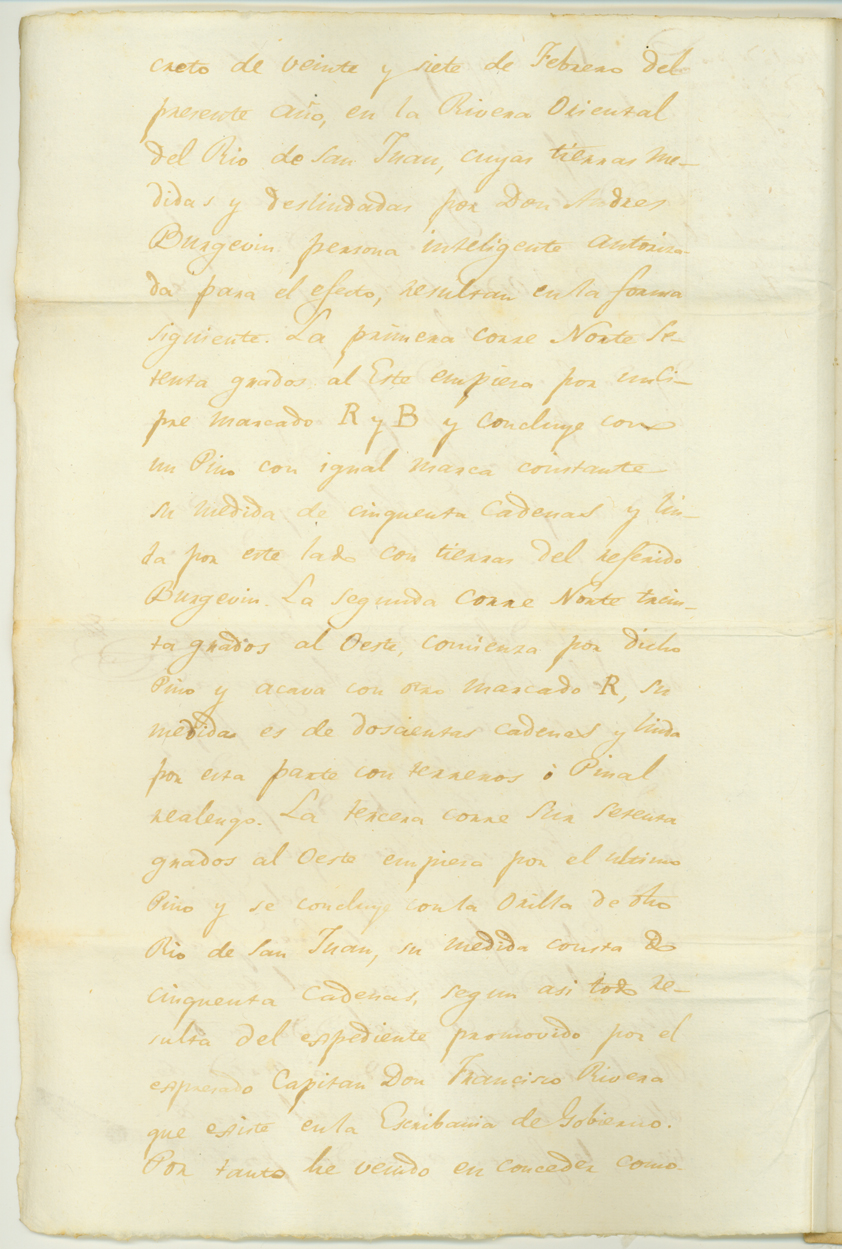 creto de veinte y siete de Febrero del
presente año, en la Rivera Oriental
del Rio de San Juan, cuyas tierras me-
didas y deslindadas por Don Andres
Burgevin persona inteligente autoriza-
da para el efecto, resultan en la forma
siguiente. La primera corre Norte Se-
tenta grados al Este empieza por un Ci-
pre marcado R y B y concluye con
un Pino con igual marca constante
su medida de cinquenta Cadenas y lin-
da por este lado con tierras del referido
Burgevin. La segunda corre Norte trein-
ta grados al Oeste, comienza por dicho
Pino y acava con otro marcado R, su
medida es de doscientas cadenas y linda
por esta parte con terrenos ò Pinal
realengo. La tercera corre Sur Setenta
grados al Oeste empieza por el ultimo
Pino y se concluye con la Orilla de dho
Rio de San Juan, su medida consta de
cinquenta Cadenas, segun asi todo re-
sulta del espediente promovido por el
espresado Capitan Don Francisco Rivera
que esiste en la Escribania de Gobierno.
Por tanto he venido en conceder como